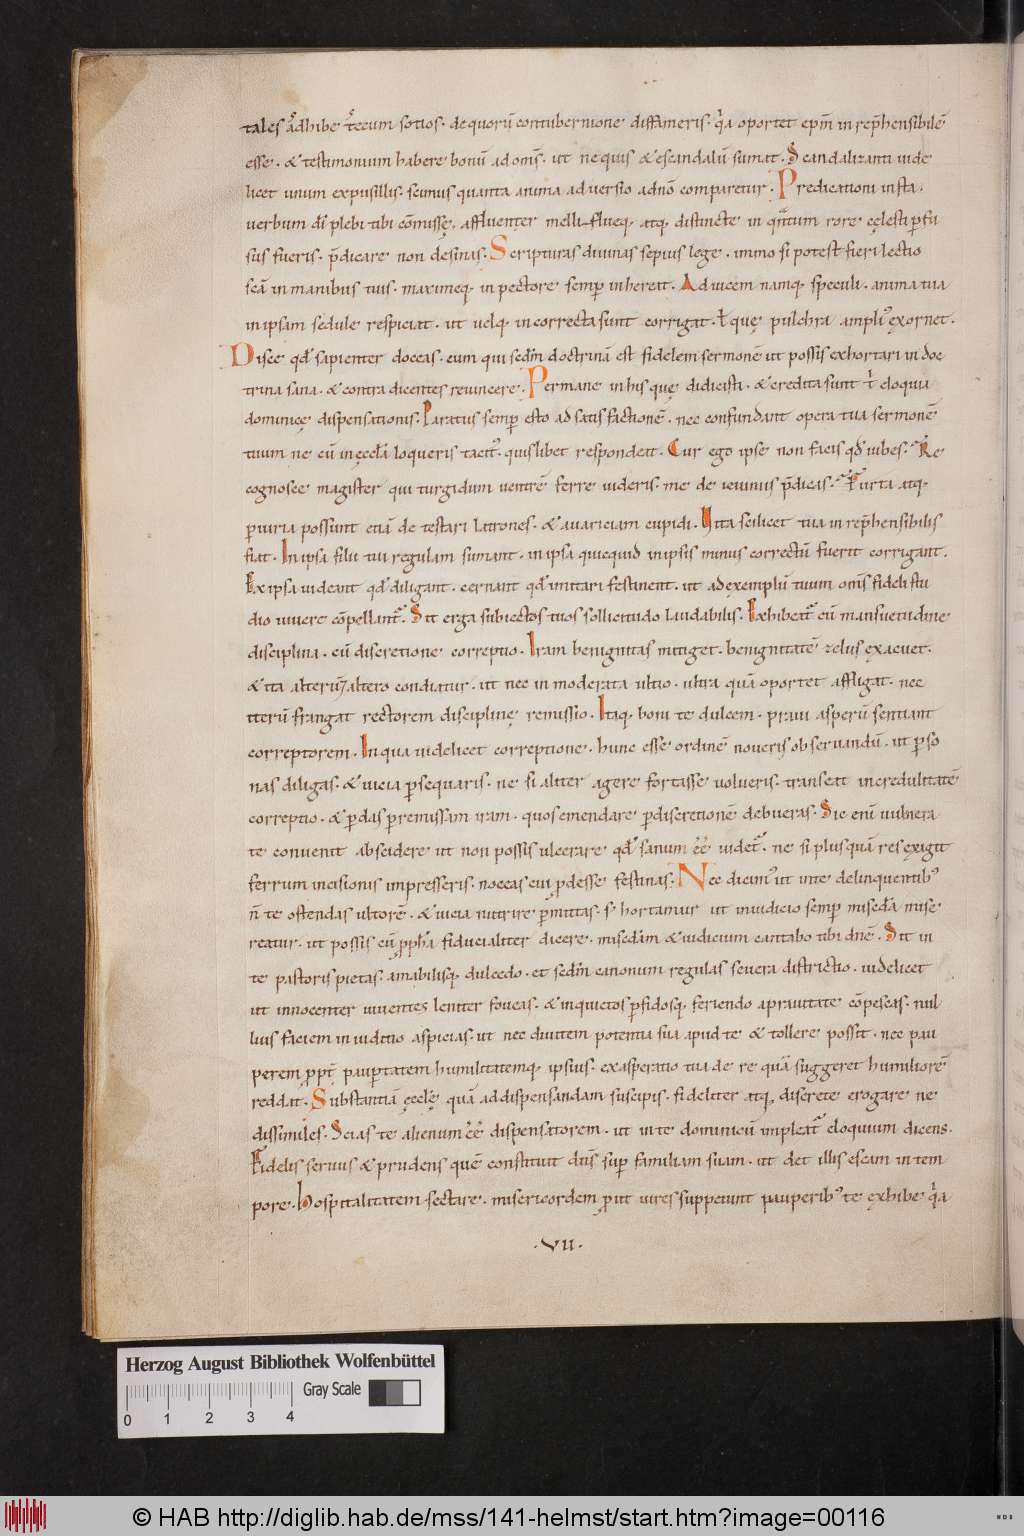 tales adhibe tecum sotios. de quorū contubernione diffameris. q̓a oportet ep̄m inrep̄hensibilē
esse. & testimonium habere bonū ad om̄s. ut nequis & escandalū sumat. Scandalizanti uide
licet unum expusillis. scimus quanta anima aduersio adn̄o comparetur. Predicationi insta.
uerbum dī plebi tibi cōmissę. affluenter melliflueq. atq. distincte in q̄ntum rore cęlesti pfu
sus fueris. p̄dicare non desinas. Scripturas diuinas sepius lege. immo si potest fieri lectio
scā in manibus tuis. maximeq. in pectore semp inhereat. Ad uicem namq. speculi. anima tua
in ipsam sedule respiciat. ut uelq. incorrecta sunt corrigat. ł quę pulchra ampli᾿ exornet.
Disce qd̓ sapienter doceas. eum qui sedm̄ doctrinā est fidelem sermonē ut possis exhortari in doc
trina sana. & contradicentes reuincere. Permane in his quę didicisti. & credita sunt t̓ eloquia
dominicę dispensationis. Paratus semp esto ad satisfactionē. nec confundant opera tua sermonē
tuum ne cū in ęcclā loqueris tacit᾿. quislibet respondeat. Cur ego ipse non facis qd̓ iubes. Re
cognosce magister qui turgidum uentrē ferre uideris. me de ieiunus p̄dicas. Furta atq.
piuria possunt etiā detestari latrones. & auariciam cupidi. Uita scilicet tua inrep̄hensibilis
fiat. In ipsa filii tui regulam sumant. in ipsa quicquid in ipsis minus correctū fuerit corrigant.
Ex ipsa uideant qd̓ diligant. cernant qd̓ imitari festinent. ut adexemplū tuum om̄s fideli stu
dio uiuere cōpellant᾿. Sit erga subiectos tuos sollicitudo laudabilis. Exhibeat᾿ cū mansuetudine
disciplina. cū discretione correptio. Iram benignitas mitiget. benignitatē zelus exacuet.
& ita alterū7 altero condiatur. ut nec inmoderata ultio. ultra quā oportet affligat. nec
iterū frangat rectorem disciplinę remissio. Itaq. boni te dulcem. praui asperū sentiant
correptorem. In qua uidelicet correptione. hunc esse ordinē noueris obseruandū. ut pso
nas diligas. & uicia psequaris. ne si aliter agere fortasse uolueris. transeat in credulitatē
correptio. & pdas premissam iram. quos emendare pdiscretionē debueras. Sic enī uulnera
te conuenit abscidere ut non possis ulcerare qd̓ sanum ēē uidet᾿. ne si plus quā res exigit
ferrum incisionis impresseris. noceas cui pdesse festinas. Nec dicim᾿ ut inte delinquentib᾿
n̄ te ostendas ultorē. & uicia nutrire pmittas. s᾿ hortamur ut in iudicio semp misedā mise
reatur. ut possis cū pph̄a fiducialiter dicere. misedām & iudicium cantabo tibi dn̄e. Sit in
te pastoris pietas. amabilisq. dulcedo. et sedm̄ canonum regulas seuera districtio. uidelicet
ut innocenter uiuentes leniter foueas. & inquietos pfidosq. feriendo aprauitate cōpescas. nul
lius faciem in iuditio aspicias. ut nec diuitem potentia sua apud te & tollere possit. nec pau
perem ppt̄ paup̄tatem humilitatemq. ipsius. exasperatio tua de re quā suggeret humiliorē
reddat. Substantiā ęcclę quā ad dispensandam suscipis. fideliter atq. discrete erogare ne
dissimiles. Scias te alienum ēē dispensatorem. ut inte dominicū impleat᾿ eloquium dicens.
Fidelis seruus & prudens quē constituit dn̄s sup familiam suam. ut det illis escam in tem
pore. Hospitalitatem sectare. misericordem put uires suppetunt pauperib᾿ te exhibe q̓a
.VII.
Herzog August Bibliothek Wolfenbüttel
Gray Scale
0 1 2 3 4
© HAB http://diglib.hab.de/mss/141-helmst/start.htm?image=00116